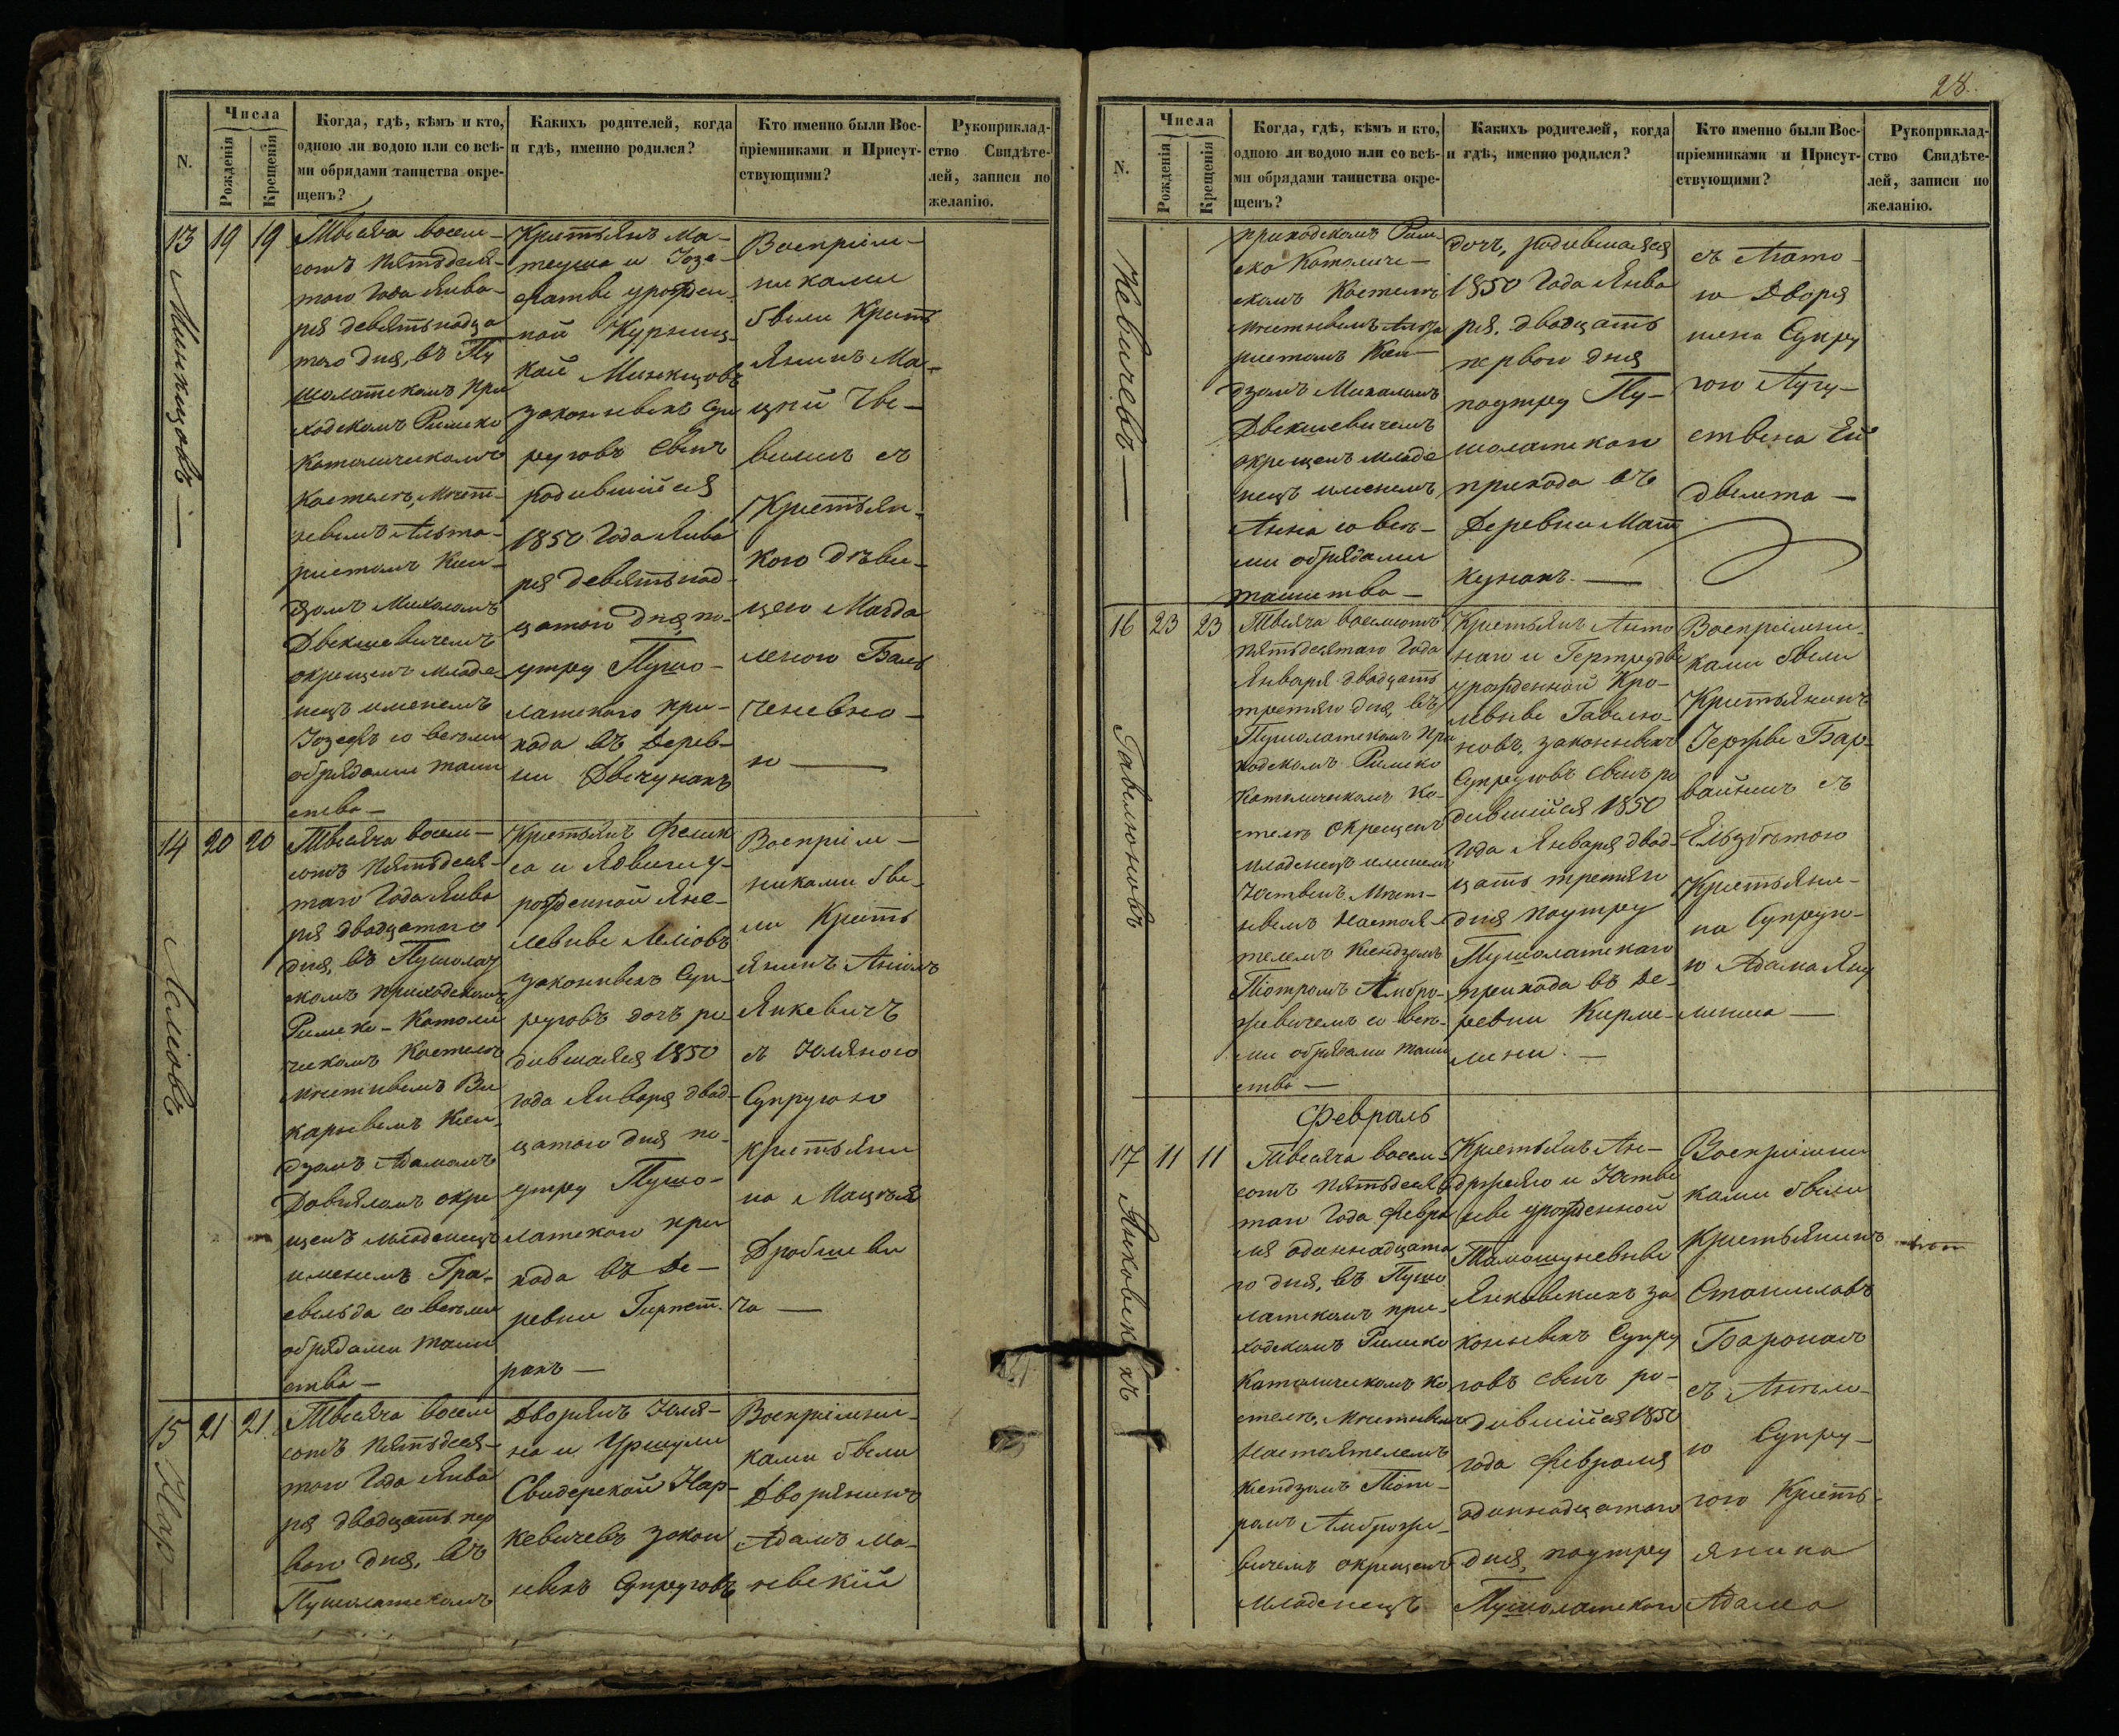 28.
N.
Числа
Рожденія
Крещенія
Когда, гдѣ, кѣмъ и кто,
одною ли водою или со всѣ-
ми обрядами таинства окре-
щенъ?
Какихъ родителей, когда
и гдѣ, именно родился?
Кто именно были Вос-
пріемниками и Присут-
ствующими?
Рукоприклад-
ство Свидѣте-
лей, записи по
желанію.
13
19
19
Минкцовъ
Тысяча восем-
сотъ пятьдеся-
таго Года Янва-
ря девятьнадца
таго дня, въ Пу
шолатскомъ при
ходскомъ Римско
Католическомъ
Костелѣ, мѣст-
нымъ Альта-
ристомъ Ксен-
дзомъ Михаломъ
Двекшевичемъ
окрещенъ младе-
нецъ именемъ
Іозефъ со всѣми
обрядами таин
ства
Крестьянъ Ма-
теуша и Іозе-
фаты урожден-
ной Курниц-
кой Минкцовъ
законныхъ Суп
руговъ сынъ
родившійся
1850 Года Янва
ря девятьнад-
цатаго дня по-
утру Пушо-
латскаго при-
хода въ Дерев-
ни Двечунахъ
Воспріем-
никами
были Крест
янинъ Ма-
цѣй
съ
Крестьян-
кою дѣви-
цею Магда
леною
14
20
20
Лелюовъ
Тысяча восем-
сотъ пятьдеся-
таго Года Янва
ря двадцатаго
дня, въ Пушолат
скомъ приходскомъ
Римско-Католи
ческомъ Костелѣ
мѣстнымъ Ви
карнымъ Ксен-
дзомъ Адамомъ
Довялломъ окре
щенъ младенецъ
именемъ
со всѣми
обрядами таин
ства
Крестьянъ Фелик
са и Ядвиги у-
рожденной
законныхъ Суп-
руговъ дочь ро
дившаяся 1850
года Января двад-
цатаго дня по-
утру Пушо-
латскаго при
хода въ Де-
ревни
Воспріем-
никами бы-
ли Кресть
янинъ
Янкевичъ
съ Юляною
Супругою
крестьяни
на Мацѣя
Дробшеви
ча
15
21
21
Тысяча восем
сотъ пятьдеся-
таго Года Янва
ря двадцать пер
ваго дня, въ
Пушолатскомъ
Дворянъ Юлія-
на и Уршули
Свидерской Нар-
кевичевъ закон
ныхъ Супруговъ
Воспріемни-
ками были
Дворянинъ
Адамъ
N.
Числа
Рожденія
Крещенія
Когда, гдѣ, кѣмъ и кто,
одною ли водою или со всѣ-
ми обрядами таинства окре-
щенъ?
Какихъ родителей, когда
и гдѣ, именно родился?
Кто именно были Вос-
пріемниками и Присут-
ствующими?
Рукоприклад-
ство Свидѣте-
лей, записи по
желанію.
приходскомъ Рим-
ско Католиче-
скомъ Костелѣ
мѣстнымъ Альта
ристомъ Ксен-
дзомъ Михаломъ
Двекшевичемъ
окрещенъ младе
нецъ именемъ
Анна со всѣ-
ми обрядами
таинства
дочь, родившаяся
1850 Года Янва
ря двадцать
перваго дня
поутру Пу-
шолатскаго
прихода въ
Деревни Мат
кунахъ.
съ
ю Дворя
нина Супру
гою Авгу-
16
23
23
Гавелюновъ
Тысяча восемсотъ
пятьдесятаго Года
Января двадцать
третяго дня, въ
Пушолатскомъ при
ходскомъ Римско
Католическомъ Ко-
стелѣ окрещенъ
младенецъ именемъ
Юстынъ мѣст-
нымъ Настоя-
телемъ Ксендзомъ
Піотромъ Амбро-
жевичемъ со всѣ-
ми обрядами таин
ства
Крестьянъ Анто
наго и Гертруды
урожденной Кро-
левны Гавелю-
новъ, законныхъ
Супруговъ сынъ ро
дившійся 1850
Года Января двад-
цать третяго
дня поутру
Пушолатскаго
прихода въ Де-
ревни Кирме-
лини
Воспріемни-
ками были
Крестьянинъ
Іержы
съ
Ельзбѣтою
Крестьяни-
на Супруго-
ю Адама
Февраль
17
11
11
Янковскихъ
Тысяча восем-
сотъ пятьдеся
таго Года Февра
ля одиннадцата
го дня, въ Пушо
латскомъ при-
ходскомъ Римско
Католическомъ Ко
стелѣ, мѣстнымъ
Настоятелемъ
Ксендзомъ Піот-
ромъ Амброже-
вичемъ окрещенъ
младенецъ
Крестьянъ Ан-
држея и Юсты
ны урожденной
Томошуневны
Янковскихъ за
конныхъ Супру
говъ сынъ ро-
дившійся 1850
года Февраля
одиннадцатаго
дня, поутру
Пушолатскаго
Воспріемни
ками были
Крестьянинъ
Станиславъ
Баронасъ
съ Анелю-
ю Супру-
гою Кресть-
янина
Адама